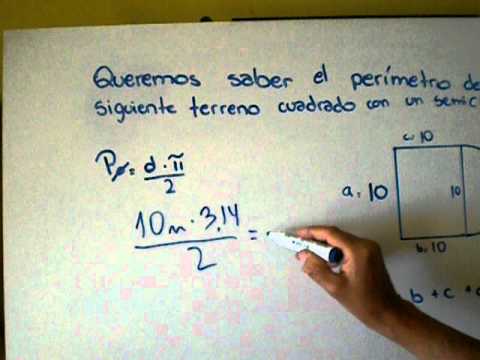 Queremos saber el perímetro de
siguiente terreno cuadrado con un semic
P⌀ = d · π
2
c. 10
a = 10
10
b. 10
10m · 3,14 =
2
b + c +